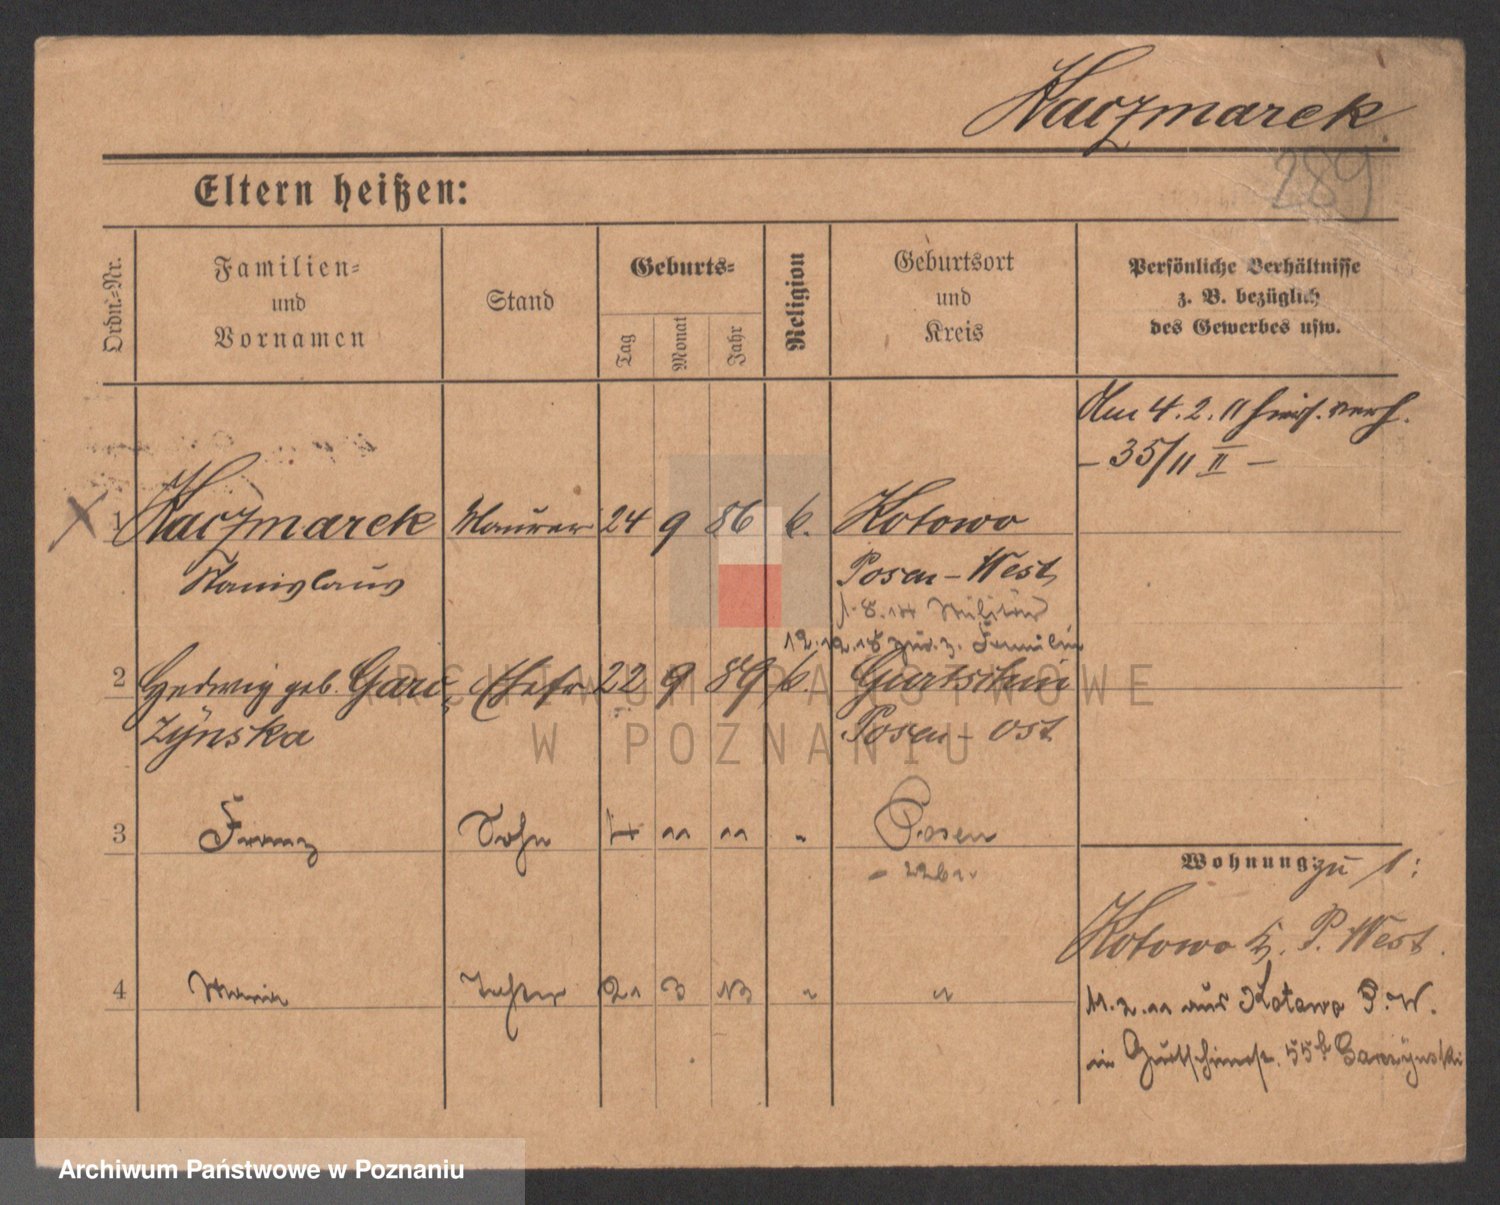 Kaczmarek.
289
Eltern heißen:
Ordn.-Nr.
Familien-
und
Vornamen
Stand
Geburts-
Tag
Monat
Jahr
Religion
Geburtsort
und
Kreis
Persönliche Verhältnisse
z. B. bezüglich
des Gewerbes usw.
Am 4. 2. 11 verh.
- 35/11 II -
1 Kaczmarek Maurer 24 9 86 k. Kotowo
Stanislaus Posen-West
1. 8. 14 Militär
12. 12. 18 z. Familie
2 Hedwig geb. Garc Ehefr 22 9 89 k. Gurtschin
zÿnska Posen-Ost
3 Franz Sohn 11 11 Posen
4 Maria Tochter 21 3 13 "
Wohnung: zu 1:
Kotowo P. West.
11. 2. 11 aus Kotowo P. W.
in Gurtschinerstr. 55 b Garczÿnski
ARCHIWUM PAŃSTWOWE
W POZNANIU
Archiwum Państwowe w Poznaniu